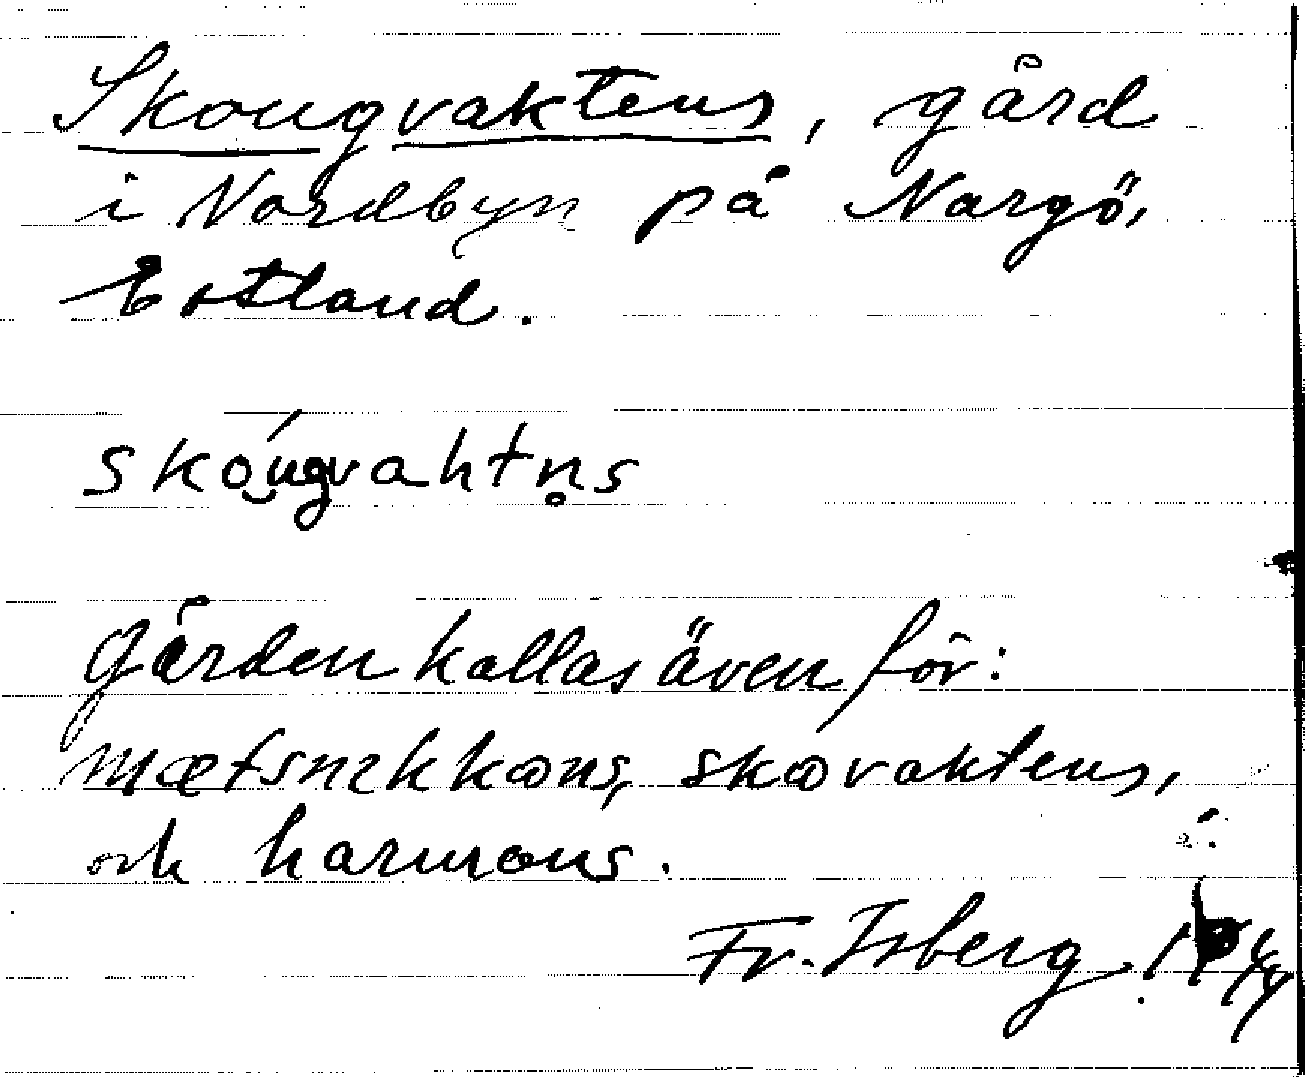 Skougvaktens, gård
i Nordbyn på Nargö,
Estland.
skóu̯gvahtn̥s
Gården kallas även för:
mætsnekkons, skovaktens,
och harmons.
Fr. Isberg. 1944